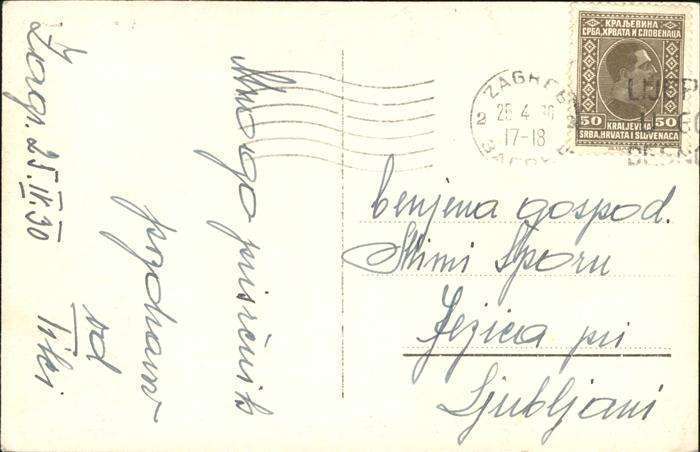 Zagr. 25.IV.30
Mnogo prisrčnih
pozdravov
od
КРАЉЕВИНА
СРБА, ХРВАТА И СЛОВЕНАЦА
50 KRALJEVINA 50
SRBA, HRVATA I SLOVENACA
ZAGREB
2
25 4 30
17-18
cenjena gospod.
Mimi Šporn
Ježica pri
Ljubljani